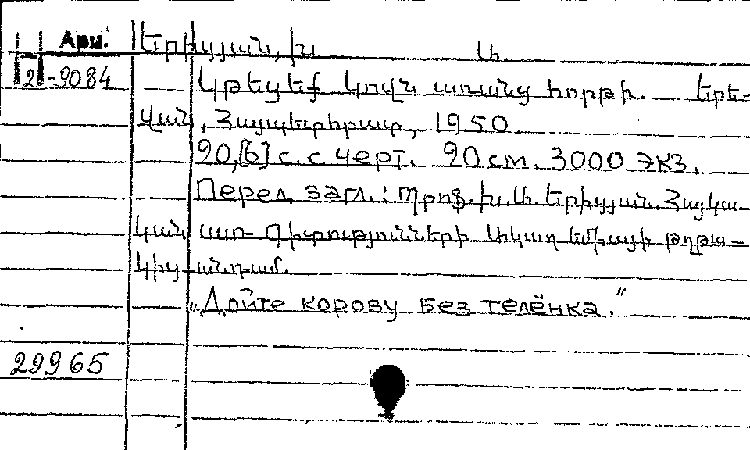 Арм. Երիցյան, Խ. Ա.
2-9084 Կթեցեք կովն առանց հորթի. Երե-
վան, Հայպետհրատ, 1950.
90, [6] с. с черт. 20 см. 3000 экз.
Перед загл.: Պրոֆ. Խ. Ա. Երիցյան. Հայկա-
կան ՍՍՌ Գիտությունների Ակադեմիայի թղթա-
կից անդամ.
„Дойте корову без телёнка.”
29965